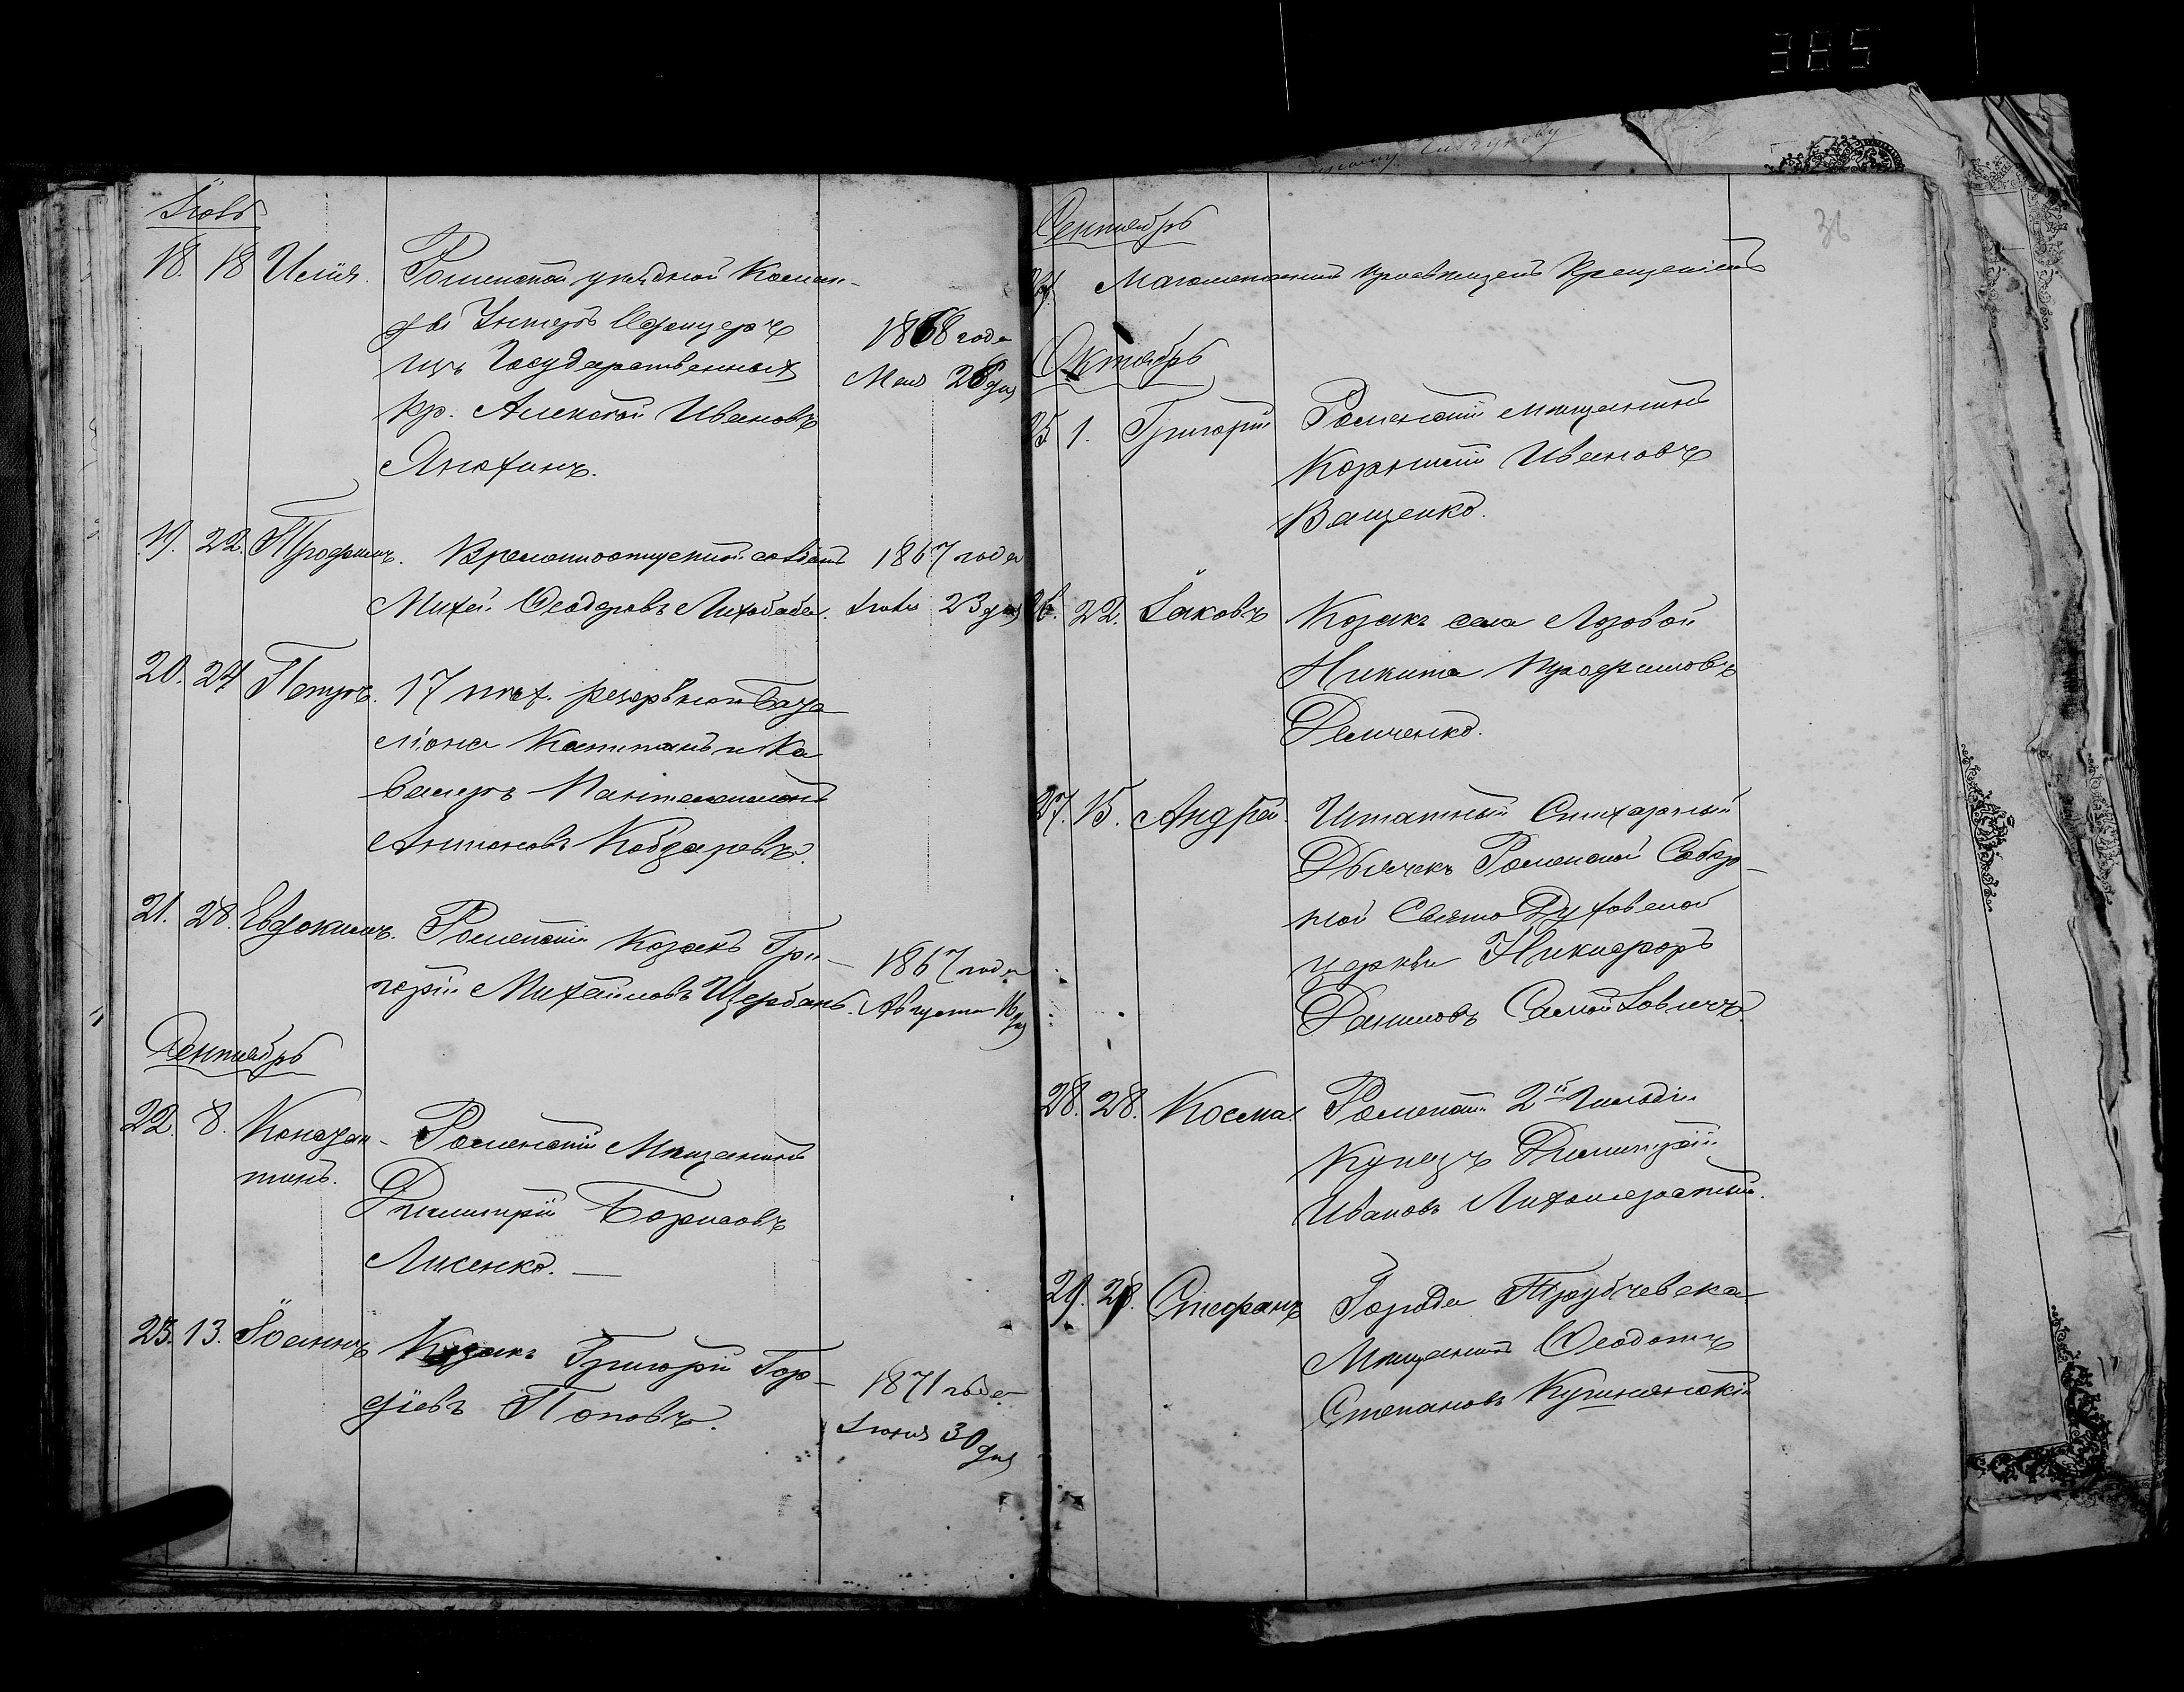 385
36
Іюль
18. 18 Илія. Роменской уѣздной Коман-
ды Унтеръ Офицеръ
изъ Государственныхъ
кр. Алексѣй Ивановъ
Анохинъ.
1868 года
Мая 26 дня
19. 22. Трофимъ. Временноотпускной солдатъ
Михей Ѳеодоровъ Лихобаба.
1867 года
Іюля 23 дня
20. 24 Петръ. 17 пѣх. резервного бата
ліона Капитанъ и Ка
валеръ Пантелеимонъ
Антоновъ Кобзаревъ.
21. 28. Евдокимъ. Роменскій Козакъ Гри-
горій Михайловъ Щербань.
1867 года
Августа 16 дня
Сентябрь
22. 8. Констан- Роменскій Мѣщанинъ
тинъ.
Димитрій Борисовъ
Лисенко. —
23. 13. Іоаннъ Козакъ Григорій Гор-
дѣевъ Поповъ.
1871 года
Іюня 30 дня
Сентябрь
24 Магометанинъ просвѣщенъ Крещеніемъ
Октябрь
25 1. Григорій Роменскій мѣщанинъ
Корнилій Ивановъ
Ващенко.
26. 22. Іаковъ Козакъ села Лозовой
Никита Трофимовъ
Демченко.
27. 15. Андрей. Штатный Стихарный
Дьячекъ Роменской Собор-
ной Свято Духовской
церкви Никифоръ
Даниловъ Самойловичъ.
28. 28. Косма. Роменскій 2й Гильдіи
Купецъ Димитрій
Ивановъ Лихошерстный.
29. 28. Стефанъ Города Трубчевска
Мѣщанинъ Ѳеодотъ
Степановъ